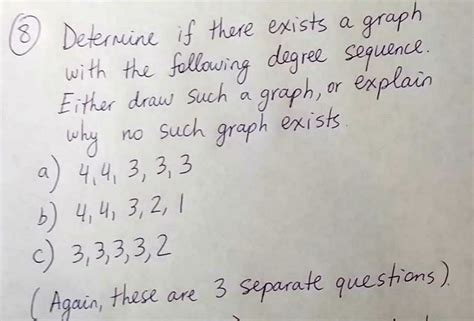 ⑧ Determine if there exists a graph
with the following degree sequence.
Either draw such a graph, or explain
why no such graph exists.
a) 4,4, 3, 3, 3
b) 4,4, 3, 2, 1
c) 3,3,3,3,2
(Again, these are 3 separate questions).